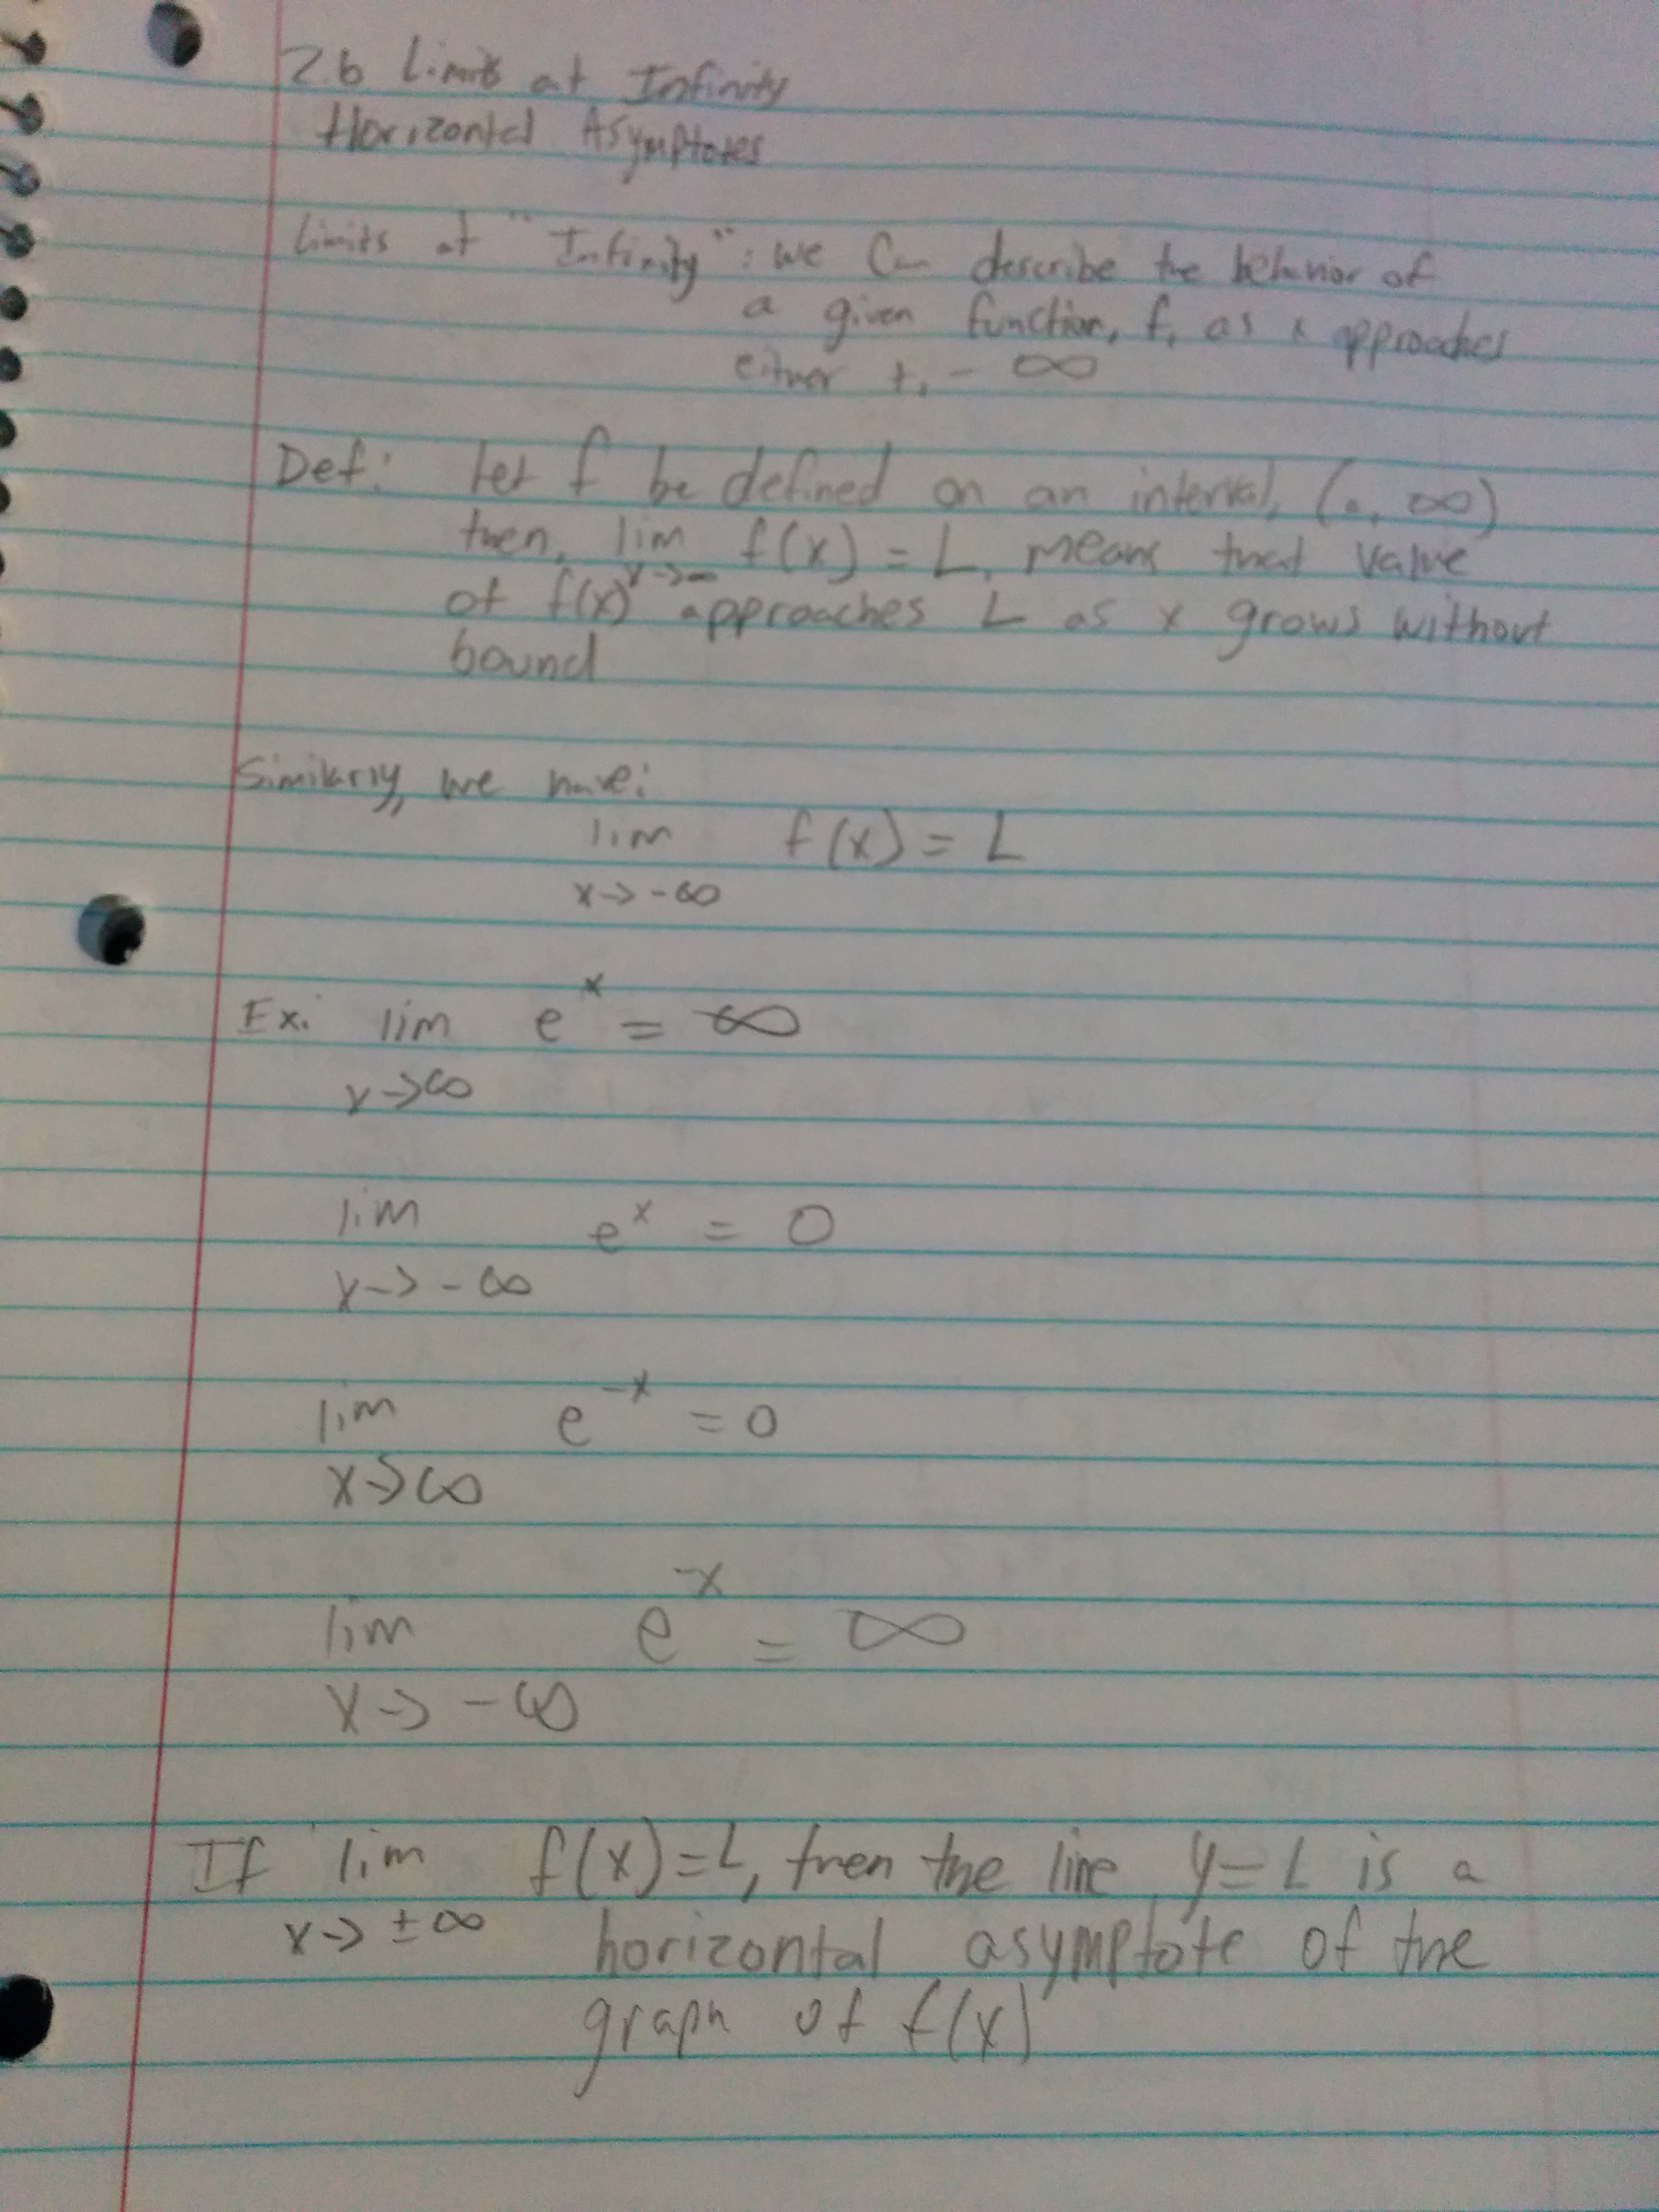 2.6 Limits at Infinity
Horizontal Asymptotes
Limits at "Infinity": we Can describe the behavior of
a given function, f, as x approaches
either +, - ∞
Def: Let f be defined on an interval, (a, ∞)
then, lim f(x) = L, means that value
x->∞
of f(x) approaches L as x grows without
bound
Similarly, we have:
lim f(x) = L
x-> -∞
Ex: lim e^x = ∞
x->∞
lim e^x = 0
x-> -∞
lim e^-x = 0
x->∞
lim e^-x = ∞
x-> -∞
If lim f(x)=L, then the line y=L is a
x-> ±∞ horizontal asymptote of the
graph of f(x)